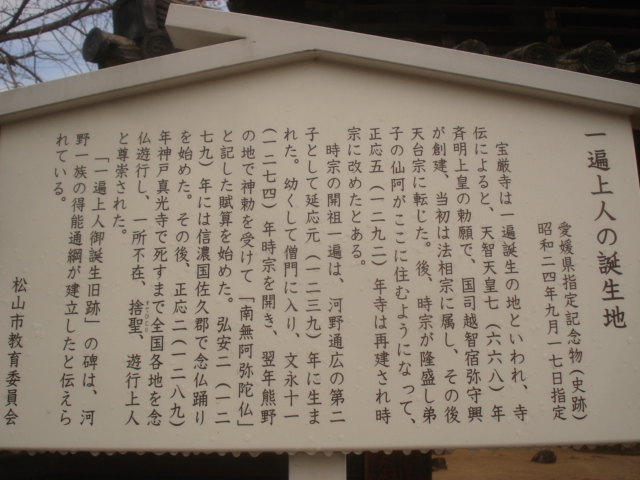 一遍上人の誕生地
愛媛県指定記念物(史跡)
昭和二四年九月一七日指定
宝厳寺は一遍誕生の地といわれ、寺
伝によると、天智天皇七(六六八)年
斉明上皇の勅願で、国司越智宿弥守興
が創建、当初は法相宗に属し、その後
天台宗に転じた。後、時宗が隆盛し弟
子の仙阿がここに住むようになって、
正応五(一二九二)年寺は再建され時
宗に改めたとある。
時宗の開祖一遍は、河野通広の第二
子として延応元(一二三九)年に生ま
れた。幼くして僧門に入り、文永十一
(一二七四)年時宗を開き、翌年熊野
の地で神勅を受けて「南無阿弥陀仏」
と記した賦算を始めた。弘安二(一二
七九)年には信濃国佐久郡で念仏踊り
を始めた。その後、正応二(一二八九)
年神戸真光寺で死すまで全国各地を念
仏遊行し、一所不在、捨聖、遊行上人
と尊崇された。
「一遍上人御誕生旧跡」の碑は、河
野一族の得能通綱が建立したと伝えら
れている。
松山市教育委員会